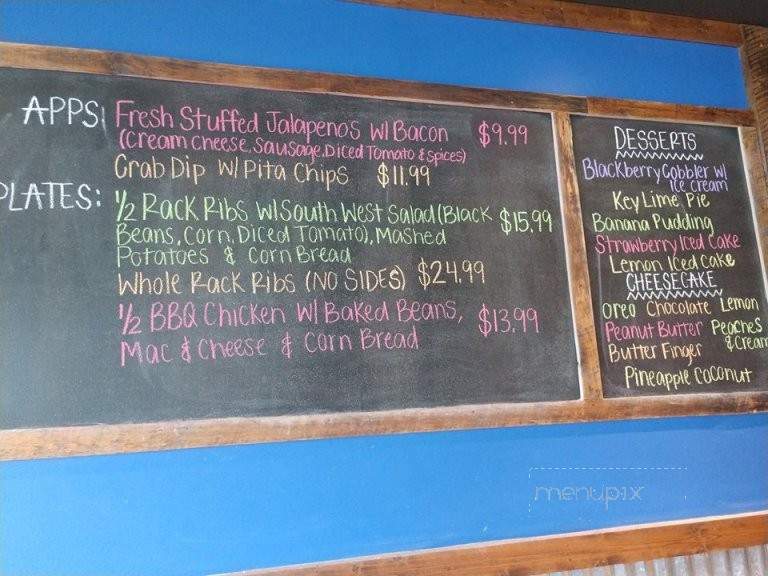 APPS:
Fresh Stuffed Jalapeno's W/ Bacon $9.99
(Cream Cheese, Sausage, Diced Tomato & Spices)
Crab Dip W/ Pita Chips $11.99
PLATES:
½ Rack Ribs W/ South West Salad (Black $15.99
Beans, Corn, Diced Tomato), Mashed
Potatoes & Corn Bread
Whole Rack Ribs (NO SIDES) $24.99
½ BBQ Chicken W/ Baked Beans, $13.99
Mac & Cheese & Corn Bread
DESSERTS
Blackberry Cobbler W/
Ice Cream
Key Lime Pie
Banana Pudding
Strawberry Iced Cake
Lemon Iced Cake
CHEESECAKE
Oreo Chocolate Lemon
Peanut Butter Peaches
Butter Finger & Cream
Pineapple Coconut
menupix